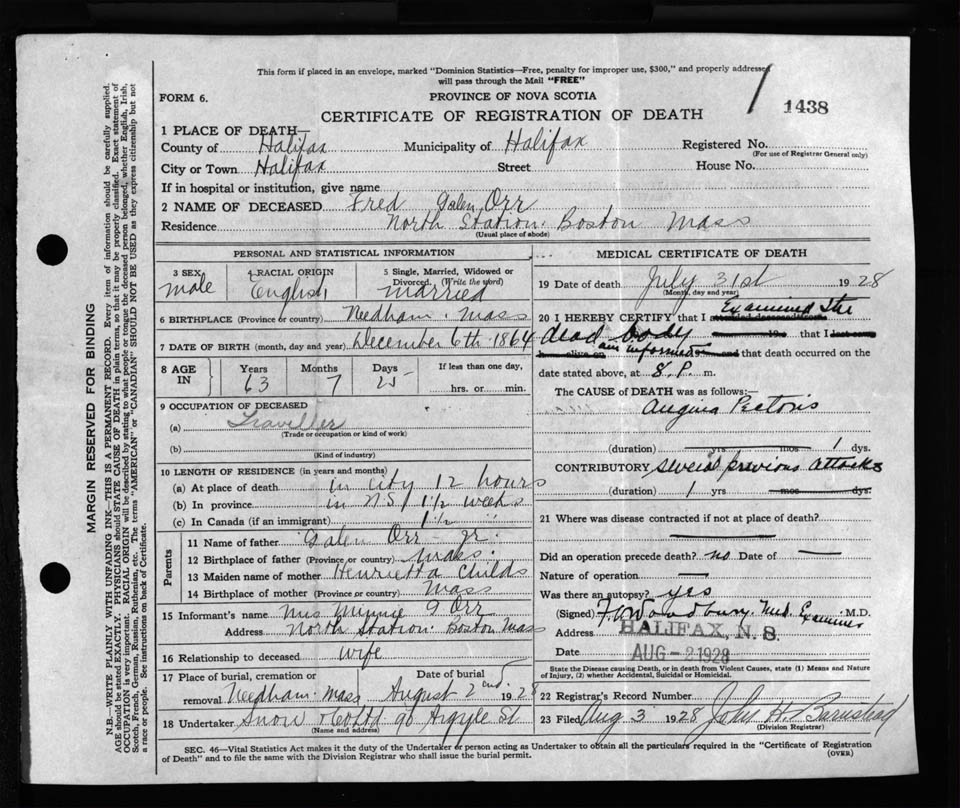 This form if placed in an envelope, marked "Dominion Statistics—Free, penalty for improper use, $300," and properly addressed
will pass through the Mail "FREE"
FORM 6.
PROVINCE OF NOVA SCOTIA
1438
CERTIFICATE OF REGISTRATION OF DEATH
1 PLACE OF DEATH—
County of Halifax Municipality of Halifax Registered No.
(For use of Registrar General only)
City or Town Halifax Street House No.
If in hospital or institution, give name
2 NAME OF DECEASED Fred Galen Orr
Residence North Station. Boston Mass
(Usual place of abode)
PERSONAL AND STATISTICAL INFORMATION
3 SEX 4 RACIAL ORIGIN 5 Single, Married, Widowed or Divorced. (Write the word)
male English married
6 BIRTHPLACE (Province or country) Needham. Mass
7 DATE OF BIRTH (month, day and year) December 6th 1864
8 AGE IN Years Months Days If less than one day,
63 7 25 hrs. or min.
9 OCCUPATION OF DECEASED
(a) Traveller
(Trade or occupation or kind of work)
(b)
(Kind of industry)
10 LENGTH OF RESIDENCE (in years and months)
(a) At place of death in city 12 hours
(b) In province in N.S. 1 1/2 weeks
(c) In Canada (if an immigrant) 1 1/2 "
Parents
11 Name of father Galen Orr Jr.
12 Birthplace of father (Province or country) Mass.
13 Maiden name of mother Henrietta Childs
14 Birthplace of mother (Province or country) Mass
15 Informant's name Mrs Minnie G Orr
Address North Station. Boston Mass
16 Relationship to deceased wife
17 Place of burial, cremation or removal Needham. Mass Date of burial August 2nd 1928
18 Undertaker Snow & Co Ltd 90 Argyle St
(Name and address)
MEDICAL CERTIFICATE OF DEATH
19 Date of death July 31st 1928
(Month, day and year)
20 I HEREBY CERTIFY that I Examined the
dead body that I
am informed that death occurred on the
date stated above, at 8. P. m.
The CAUSE of DEATH was as follows:—
Angina Pectoris
(duration) yrs mos 1 dys.
CONTRIBUTORY several previous attacks
(duration) 1 yrs mos dys.
21 Where was disease contracted if not at place of death?
Did an operation precede death? no Date of —
Nature of operation —
Was there an autopsy? yes
(Signed) Woodbury. Med. Examiner M.D.
Address HALIFAX, N. S.
Date AUG - 2 1928
State the Disease causing Death, or in death from Violent Causes, state (1) Means and Nature
of Injury, (2) whether Accidental, Suicidal or Homicidal.
22 Registrar's Record Number
23 Filed Aug 3 1928 John H. Barnstead
(Division Registrar)
SEC. 46—Vital Statistics Act makes it the duty of the Undertaker or person acting as Undertaker to obtain all the particulars required in the "Certificate of Registration
of Death" and to file the same with the Division Registrar who shall issue the burial permit.
(OVER)
MARGIN RESERVED FOR BINDING
N.B.—WRITE PLAINLY WITH UNFADING INK—THIS IS A PERMANENT RECORD. Every item of information should be carefully supplied.
AGE should be stated EXACTLY. PHYSICIANS should STATE CAUSE OF DEATH in plain terms, so that it may be properly classified. Exact statement of
OCCUPATION is very important. RACIAL ORIGIN will be described by stating to what people or tongue the deceased person belonged, whether English, Irish,
Scotch, French, German, Russian, Ruthenian, etc. The terms "AMERICAN" or "CANADIAN" SHOULD NOT BE USED as they express citizenship but not
a race or people. See instructions on back of Certificate.